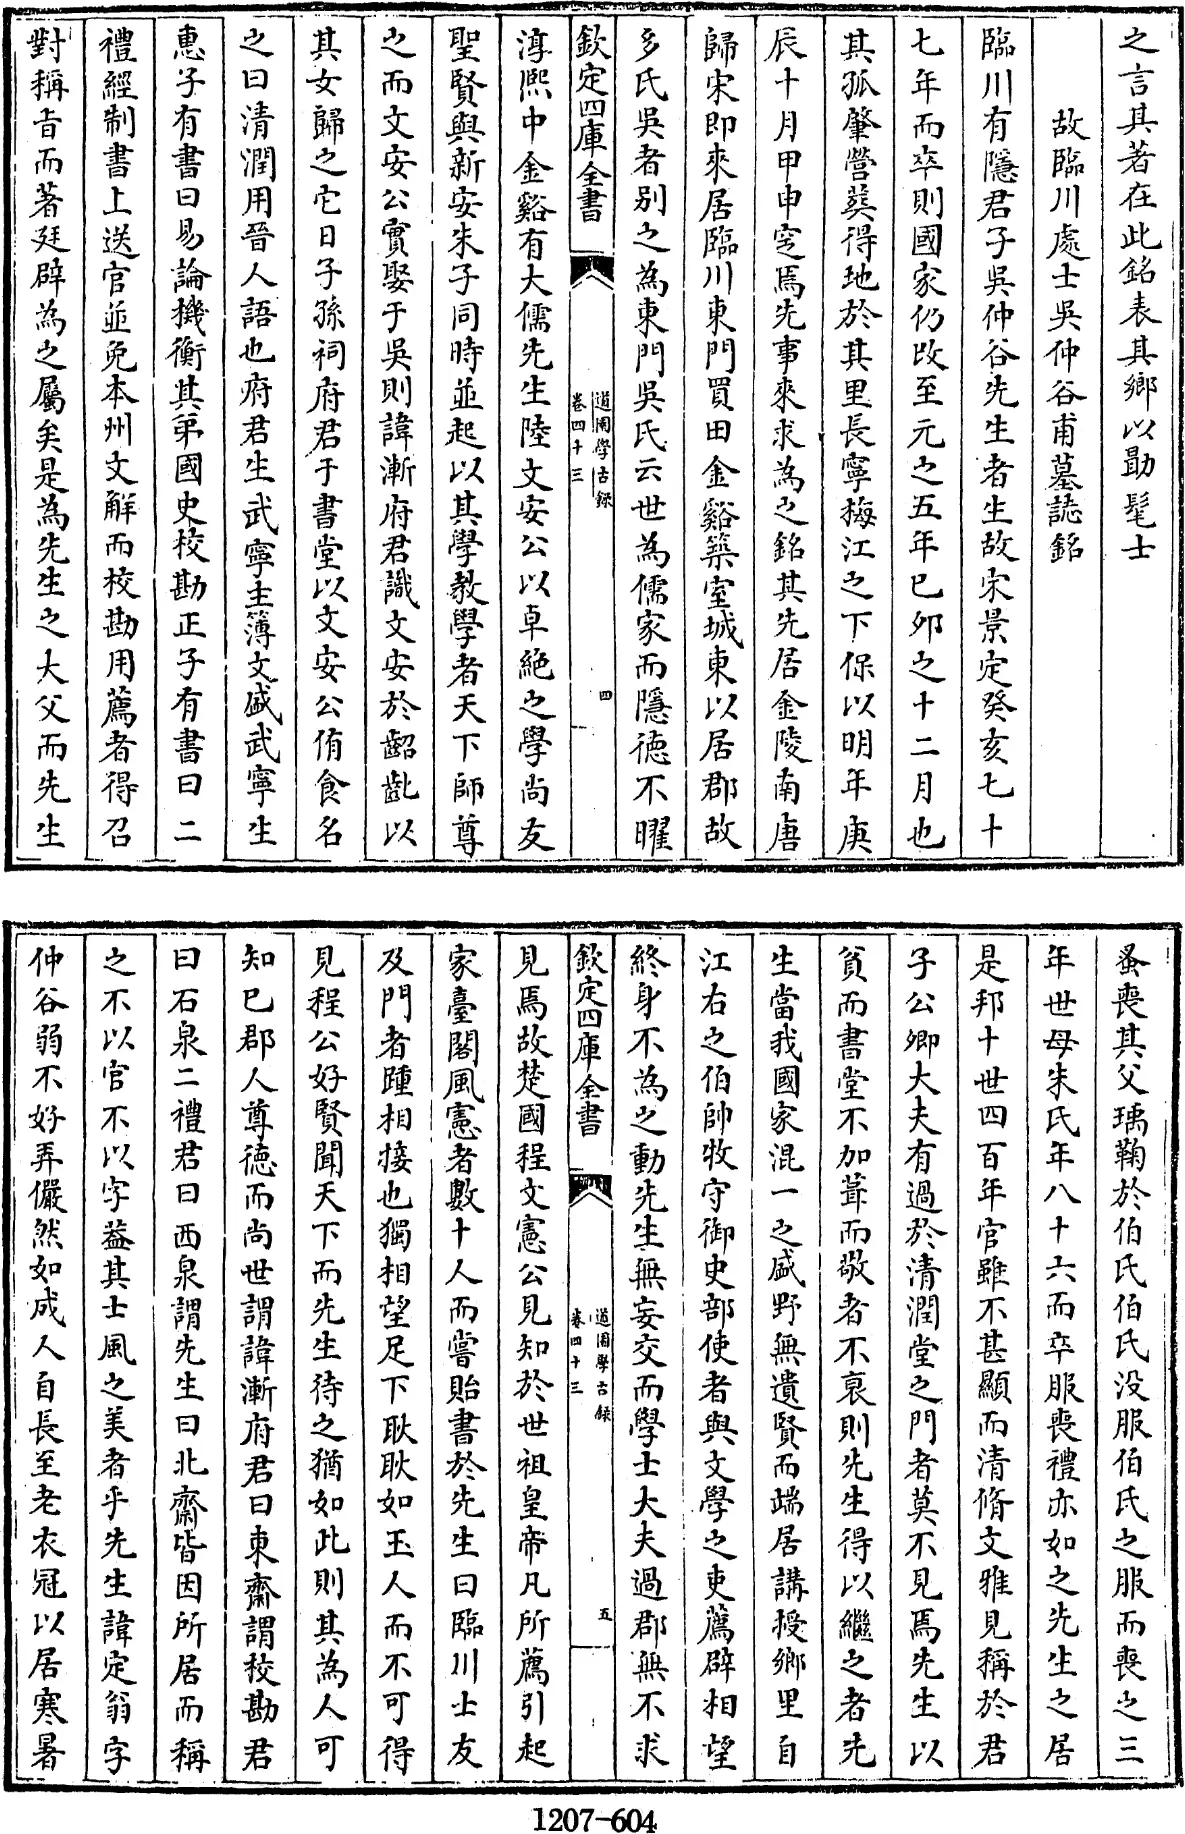 之言其著在此銘表其鄉以勖髦士
故臨川處士吳仲谷甫墓誌銘
臨川有隱君子吳仲谷先生者生故宋景定癸亥七十
七年而卒則國家仍改至元之五年已夘之十二月也
其孤肇營葬得地於其里長寧梅江之下保以明年庚
辰十月甲申窆焉先事來求為之銘其先居金陵南唐
歸宋即來居臨川東門買田金谿築室城東以居郡故
多氏吳者别之為東門吳氏云世為儒家而隱徳不曜
欽定四庫全書
道園學古録
卷四十三
四
淳熙中金谿有大儒先生陸文安公以卓絶之學尚友
聖賢與新安朱子同時並起以其學教學者天下師尊
之而文安公實娶于吳則諱漸府君識文安於齠齔以
其女歸之它日子孫祠府君于書堂以文安公侑食名
之曰清潤用晉人語也府君生武寧主簿文盛武寧生
惠子有書曰易論機衡其弟國史校勘正子有書曰二
禮經制書上送官並免本州文解而校勘用薦者得召
對稱㫖而著廷辟為之屬矣是為先生之大父而先生
蚤喪其父瑀鞠於伯氏伯氏没服伯氏之服而喪之三
年世母朱氏年八十六而卒服喪禮亦如之先生之居
是邦十世四百年官雖不甚顯而清脩文雅見稱於君
子公卿大夫有過於清潤堂之門者莫不見焉先生以
貧而書堂不加葺而敬者不衰則先生得以繼之者先
生當我國家混一之盛野無遺賢而端居講授鄉里自
江右之伯帥牧守御史部使者與文學之吏薦辟相望
終身不為之動先生無妄交而學士大夫過郡無不求
欽定四庫全書
道園學古録
卷四十三
五
見焉故楚國程文憲公見知於世祖皇帝凡所薦引起
家臺閣風憲者數十人而嘗貽書於先生曰臨川士友
及門者踵相接也獨相望足下耿耿如玉人而不可得
見程公好賢聞天下而先生待之猶如此則其為人可
知已郡人尊徳而尚世謂諱漸府君曰東齋謂校勘君
曰石泉二禮君曰西泉謂先生曰北齋皆因所居而稱
之不以官不以字葢其士風之美者乎先生諱定翁字
仲谷弱不好弄儼然如成人自長至老衣冠以居寒暑
1207-604